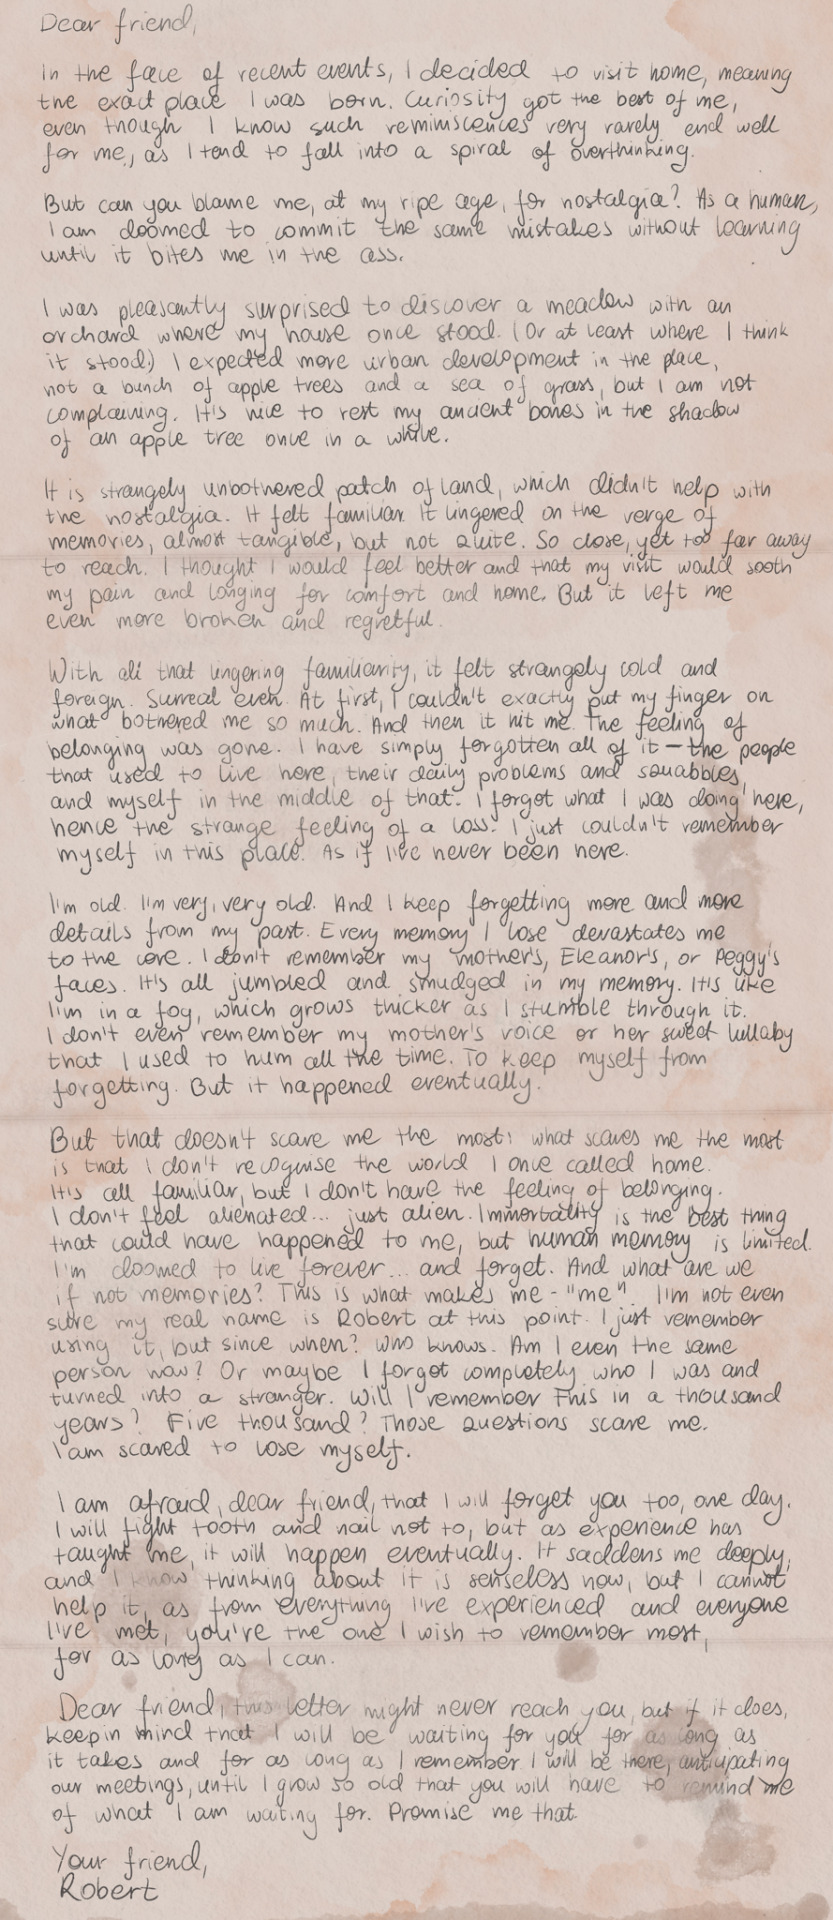 Dear friend,
In the face of recent events, I decided to visit home, meaning
the exact place I was born. Curiosity got the best of me,
even though I know such reminiscences very rarely end well
for me, as I tend to fall into a spiral of overthinking.
But can you blame me, at my ripe age, for nostalgia? As a human,
I am doomed to commit the same mistakes without learning
until it bites me in the ass.
I was pleasantly surprised to discover a meadow with an
orchard where my house once stood. (Or at least where I think
it stood.) I expected more urban development in the place,
not a bunch of apple trees and a sea of grass, but I am not
complaining. It's nice to rest my ancient bones in the shadow
of an apple tree once in a while.
It is strangely unbothered patch of land, which didn't help with
the nostalgia. It felt familiar. It lingered on the verge of
memories, almost tangible, but not quite. So close, yet too far away
to reach. I thought I would feel better and that my visit would sooth
my pain and longing for comfort and home. But it left me
even more broken and regretful.
With all that lingering familiarity, it felt strangely cold and
foreign. Surreal even. At first, I couldn't exactly put my finger on
what bothered me so much. And then it hit me. The feeling of
belonging was gone. I have simply forgotten all of it – the people
that used to live here, their daily problems and squabbles,
and myself in the middle of that. I forgot what I was doing here,
hence the strange feeling of a loss. I just couldn't remember
myself in this place. As if I've never been here.
I'm old. I'm very, very old. And I keep forgetting more and more
details from my past. Every memory I lose devastates me
to the core. I don't remember my mother's, Eleanor's, or Peggy's
faces. It's all jumbled and smudged in my memory. It's like
I'm in a fog, which grows thicker as I stumble through it.
I don't even remember my mother's voice or her sweet lullaby
that I used to hum all the time. To keep myself from
forgetting. But it happened eventually.
But that doesn't scare me the most; what scares me the most
is that I don't recognise the world I once called home.
It's all familiar, but I don't have the feeling of belonging.
I don't feel alienated... just alien. Immortality is the best thing
that could have happened to me, but human memory is limited.
I'm doomed to live forever... and forget. And what are we
if not memories? This is what makes me - "me". I'm not even
sure my real name is Robert at this point. I just remember
using it, but since when? Who knows. Am I even the same
person now? Or maybe I forgot completely who I was and
turned into a stranger. Will I remember this in a thousand
years? Five thousand? Those questions scare me.
I am scared to lose myself.
I am afraid, dear friend, that I will forget you too, one day.
I will fight tooth and nail not to, but as experience has
taught me, it will happen eventually. It saddens me deeply,
and I know thinking about it is senseless now, but I cannot
help it, as from everything I've experienced and everyone
I've met, you're the one I wish to remember most,
for as long as I can.
Dear friend, this letter might never reach you, but if it does,
keep in mind that I will be waiting for you for as long as
it takes and for as long as I remember. I will be there, anticipating
our meetings, until I grow so old that you will have to remind me
of what I am waiting for. Promise me that.
Your friend,
Robert